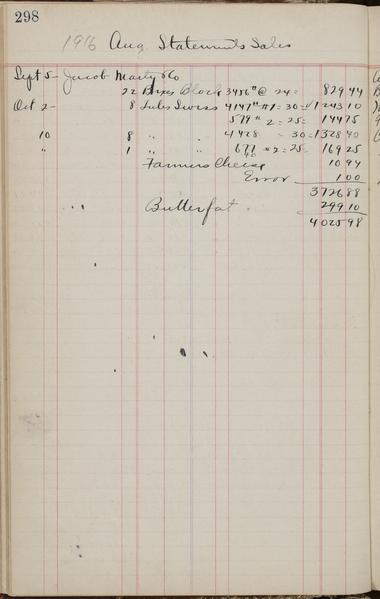 298
1916 Aug Statements Sales
Sept 5- Jacob Marty & Co
22 Boxes Block 3456# @ 24= 829 44
Oct 2- 8 Tubs Swiss 4147# #1=30= 1243 10
579# 2=25= 144 75
10 8 " " 4428 - 30= 1328 40
" 1 " " 677 #2=25= 169 25
Farmers Cheese 10 94
Error 1 00
3726 88
Butterfat 299 10
4025 98